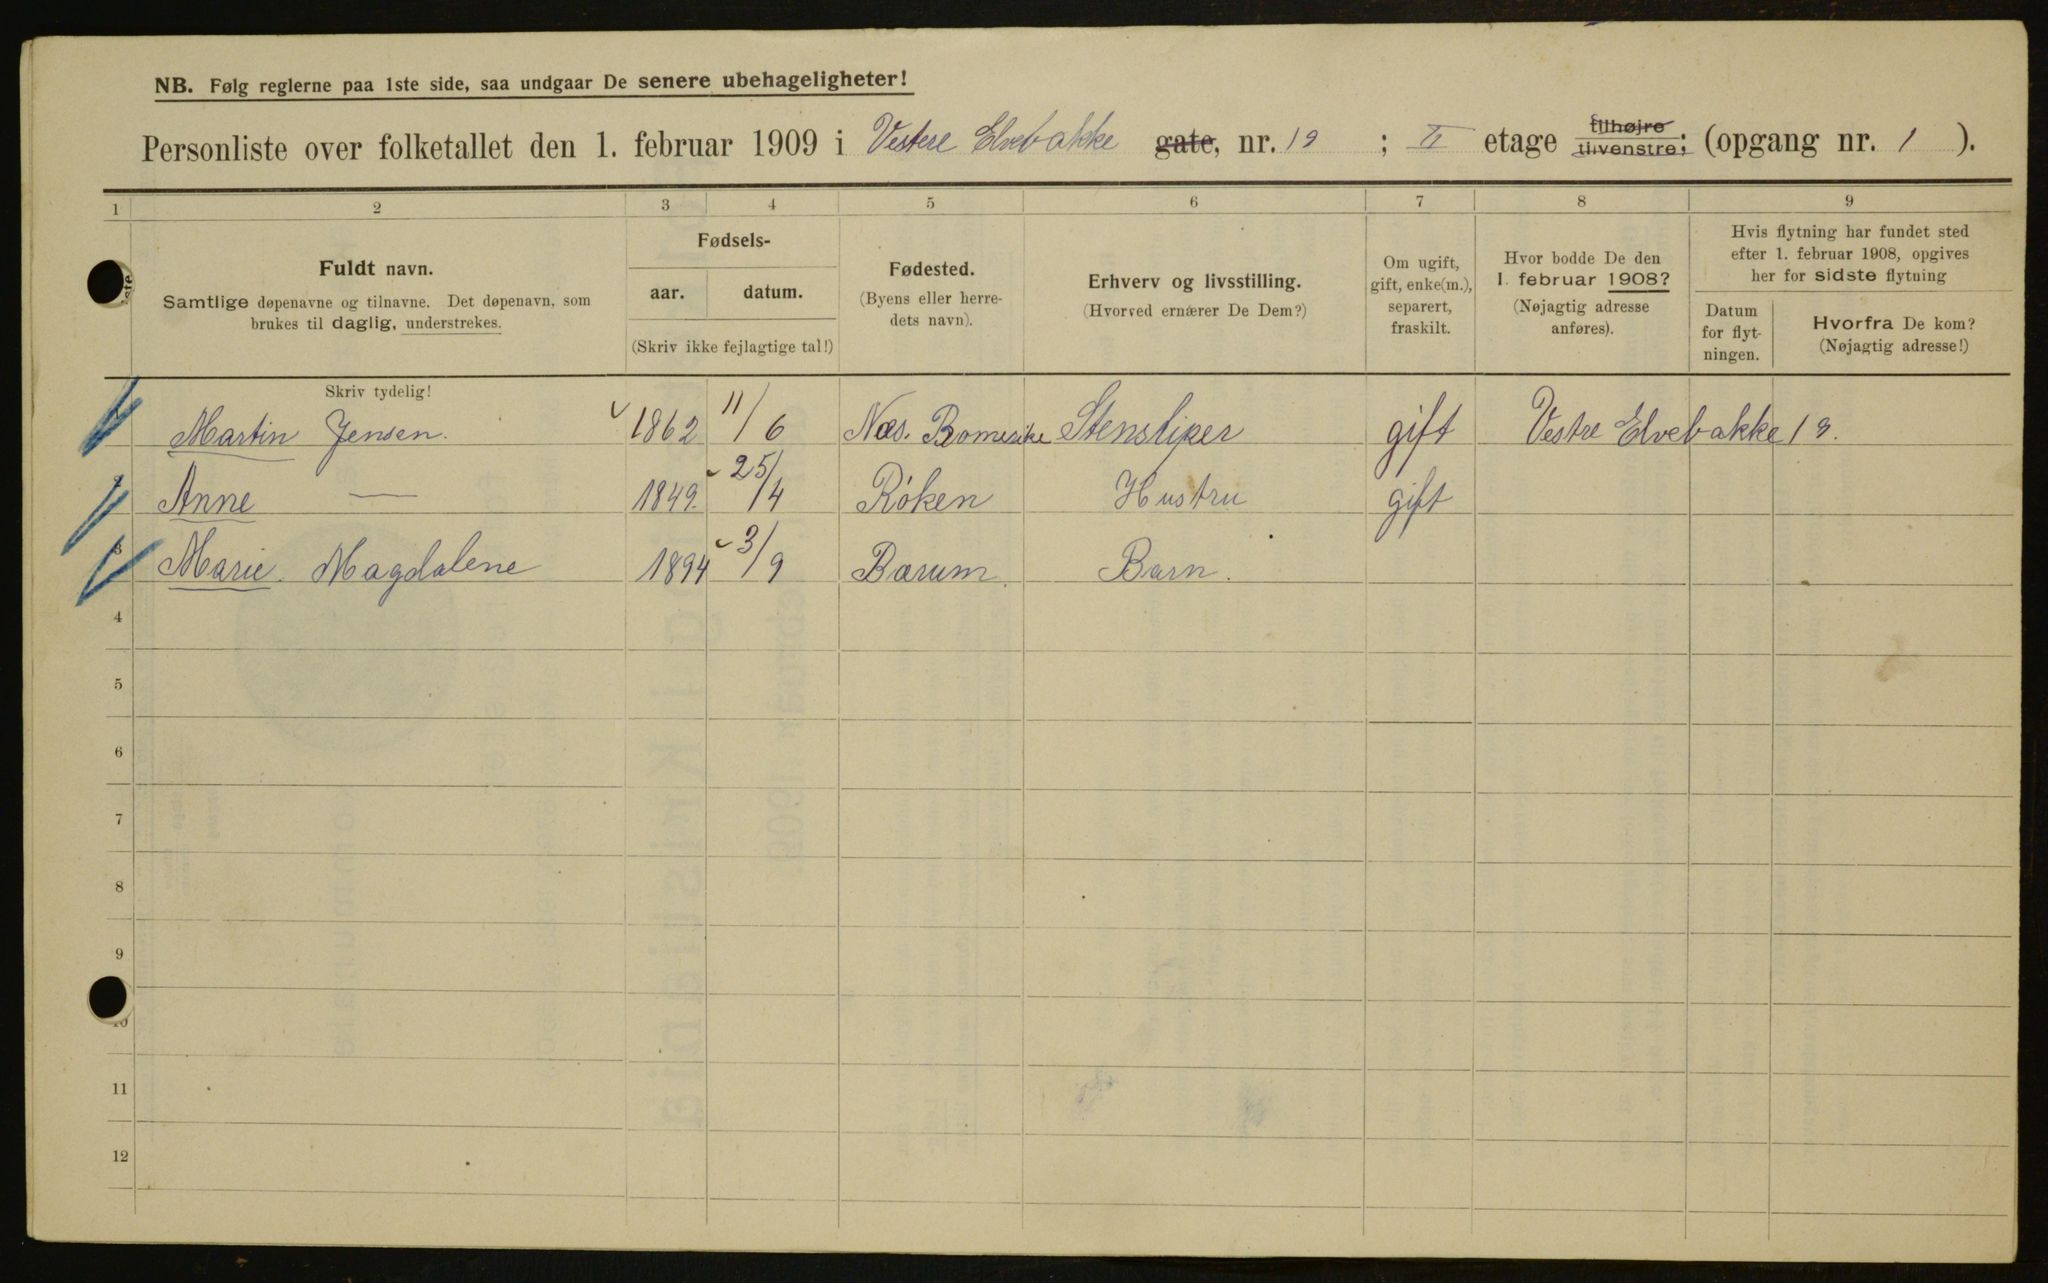 NB. Følg reglerne paa 1ste side, saa undgaar De senere ubehageligheter!
Personliste over folketallet den 1. februar 1909 i Vestere Elvebakke gate, nr. 19 ; II etage tilhøjre tilvenstre; (opgang nr. 1 ).
1 2 3 4 5 6 7 8 9
Fuldt navn.
Samtlige døpenavne og tilnavne. Det døpenavn, som
brukes til daglig, understrekes.
Fødsels-
aar. datum.
(Skriv ikke fejlagtige tal!)
Fødested.
(Byens eller herre-
dets navn).
Erhverv og livsstilling.
(Hvorved ernærer De Dem?)
Om ugift,
gift, enke(m.),
separert,
fraskilt.
Hvor bodde De den
1. februar 1908?
(Nøjagtig adresse
anføres).
Hvis flytning har fundet sted
efter 1. februar 1908, opgives
her for sidste flytning
Datum
for flyt-
ningen.
Hvorfra De kom?
(Nøjagtig adresse!)
Skriv tydelig!
Martin Jensen. 1862 11/6 Næs. Romerike Stensliper gift Vestre Elvebakke 19.
Anne — 1849. 25/4 Røken Hustru gift
3 Marie. Magdalene 1894 3/9 Bærum. Barn.
4
5
6
7
8
9
10
11
12